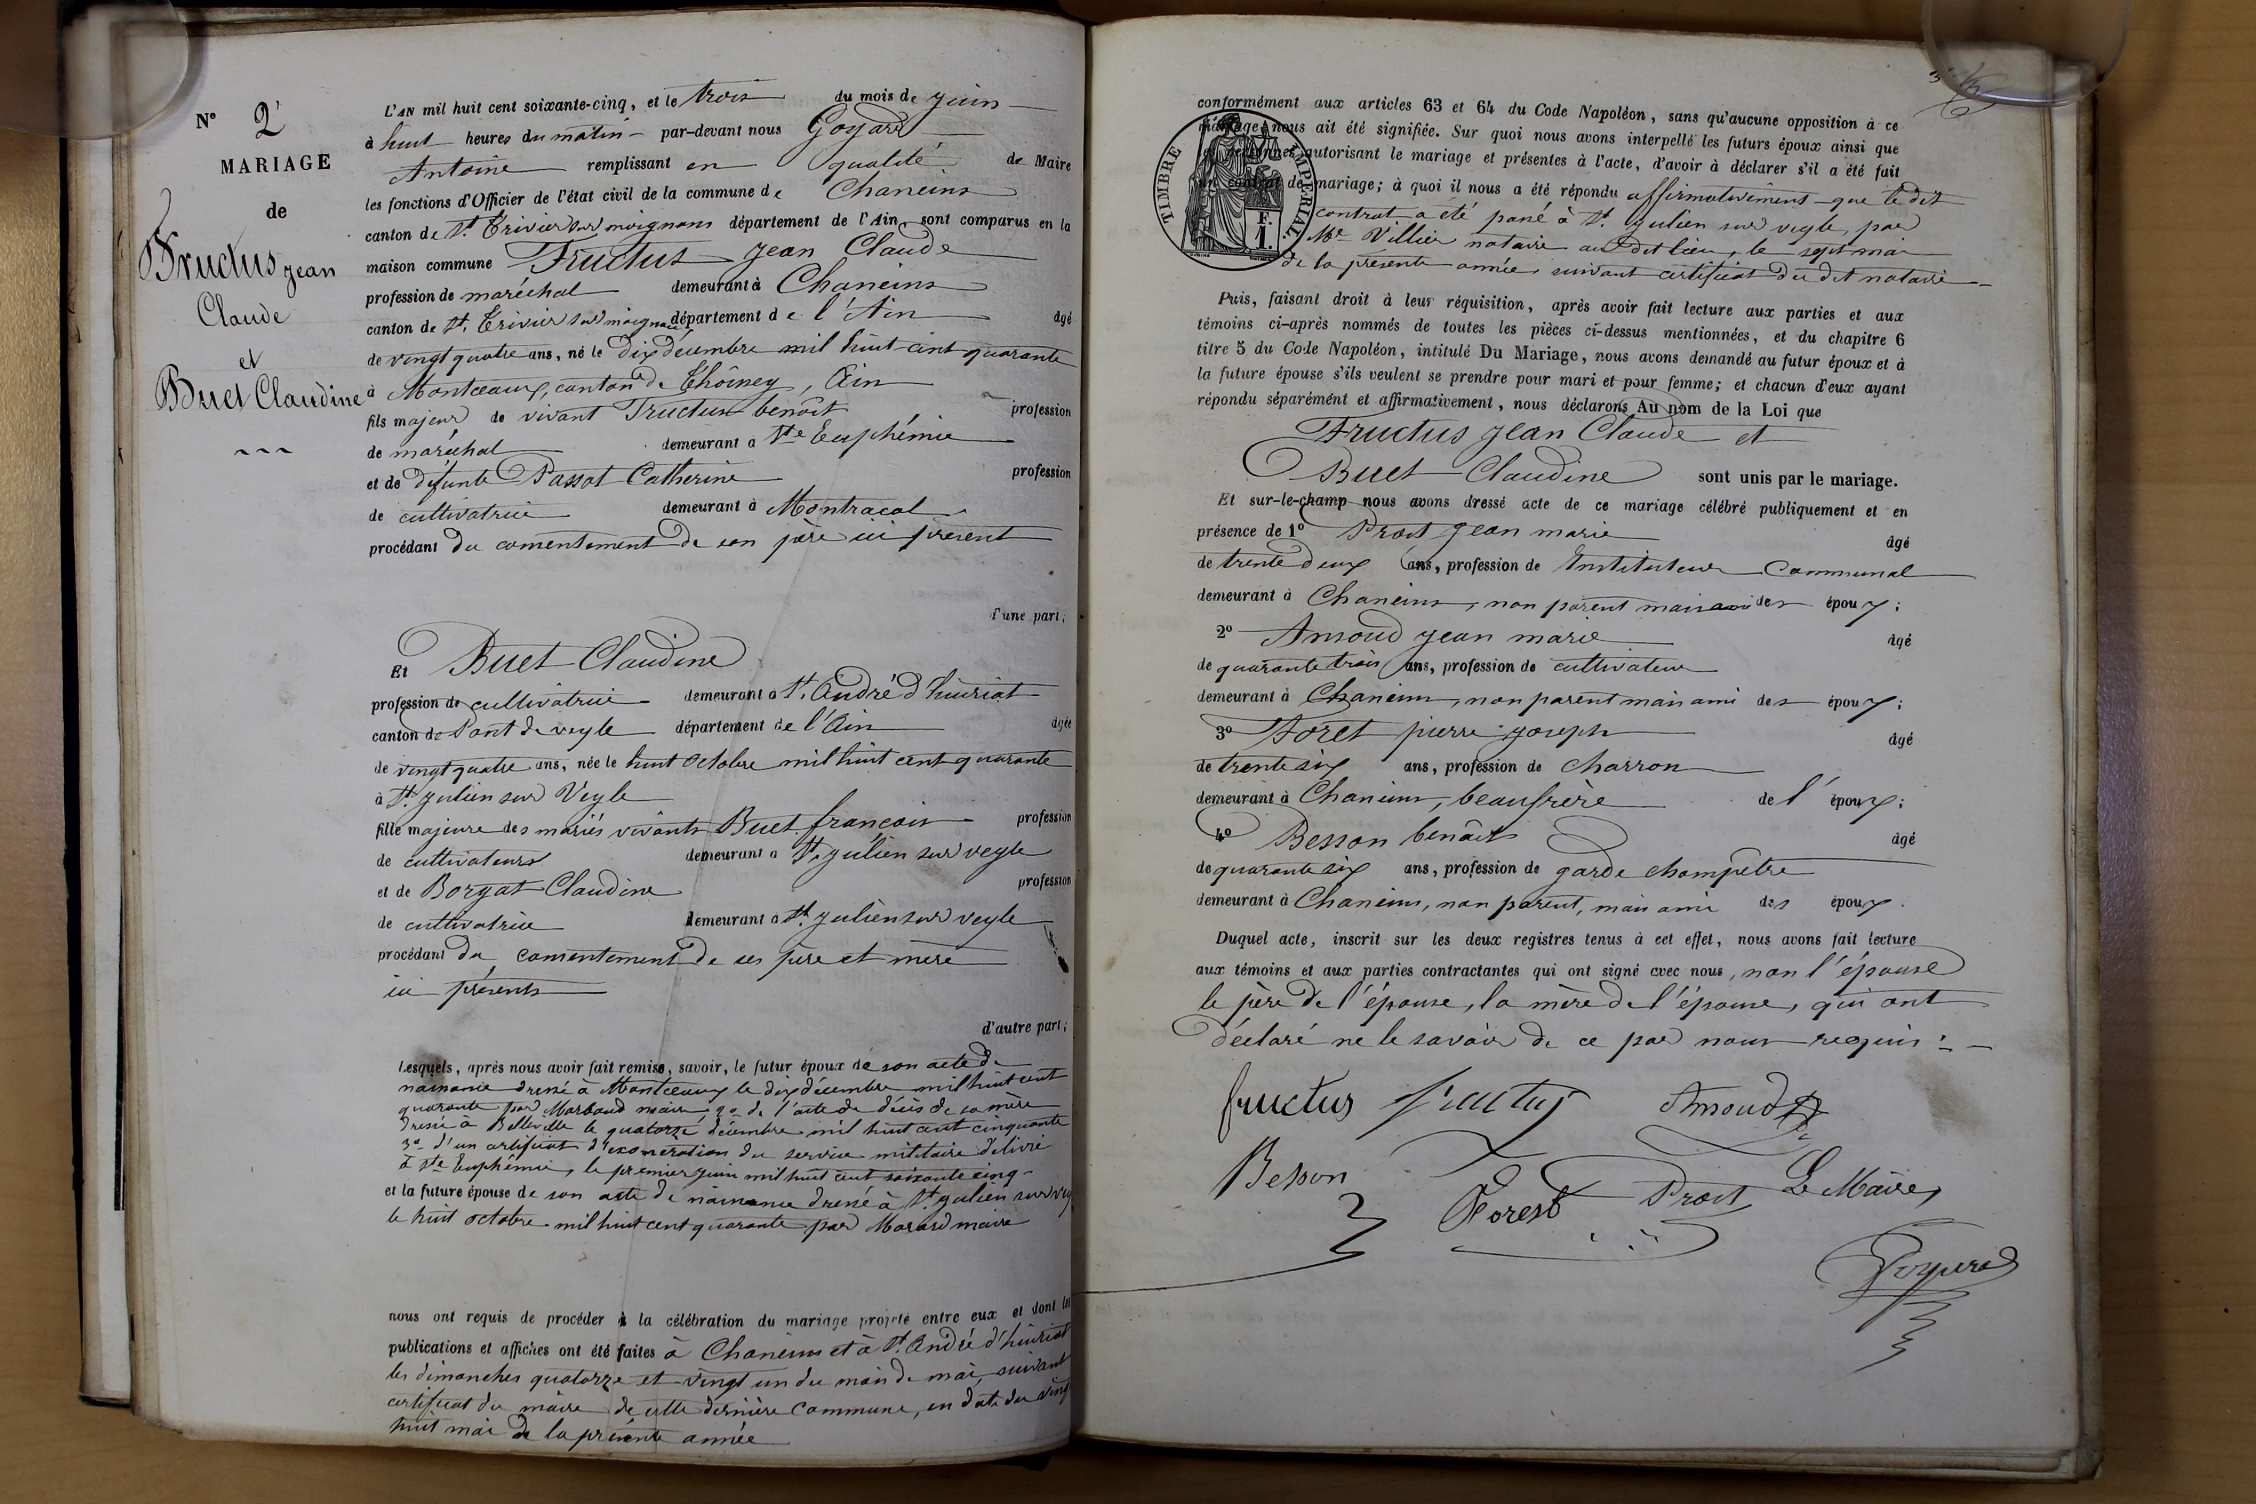 N° 2
MARIAGE
de
Fructus jean
Claude
et
Buet Claudine
L'AN mil huit cent soixante-cinq, et le trois du mois de juin
à huit heures du matin par-devant nous Goyard
Antoine remplissant en qualité de Maire
les fonctions d'Officier de l'état civil de la commune de Chaneins
canton de St. Trivier sur moignans département de l'Ain, sont comparus en la
maison commune Fructus jean Claude
profession de maréchal demeurant à Chaneins
canton de St. Trivier sur moignans département de l'Ain âgé
de vingt quatre ans, né le dix décembre mil huit cent quarante
à Montceaux, canton de Thôissey, Ain
fils majeur de vivant Fructus benoît profession
de maréchal demeurant à Ste Euphémie
et de défunte Passot Catherine profession
de cultivatrice demeurant à Montracol
procédant du consentement de son père ici présent
d'une part;
Et Buet Claudine
profession de cultivatrice demeurant à St. André d'huiriat
canton de Pont de veyle département de l'Ain âgée
de vingt quatre ans, née le huit octobre mil huit cent quarante
à St. julien sur Veyle
fille majeure des mariés vivants Buet françois profession
de cultivateurs demeurant à St. julien sur veyle
et de Borgat Claudine profession
de cultivatrice demeurant à St. julien sur veyle
procédant du consentement de ses père et mère
ici présents
d'autre part;
Lesquels, après nous avoir fait remise, savoir, le futur époux de son acte de
naissance dressé à Montceaux le dix décembre mil huit cent
quarante par maire 2° de l'acte de décès de sa mère
dressé à Belleville le quatorze décembre mil huit cent cinquante
3° d'un certificat d'exonération du service militaire délivré
à Ste Euphémie, le premier juin mil huit cent soixante cinq
et la future épouse de son acte de naissance dressé à St. julien sur vey
le huit octobre mil huit cent quarante par maire
nous ont requis de procéder à la célébration du mariage projeté entre eux et dont les
publications et affiches ont été faites à Chaneins et à St. André d'huiriat
les dimanches quatorze et vingt un du mois de mai, suivant
certificat du maire de cette dernière commune, en date du vingt
huit mai de la présente année
conformément aux articles 63 et 64 du Code Napoléon, sans qu'aucune opposition à ce
mariage nous ait été signifiée. Sur quoi nous avons interpellé les futurs époux ainsi que
les personnes autorisant le mariage et présentes à l'acte, d'avoir à déclarer s'il a été fait
un contrat de mariage; à quoi il nous a été répondu affirmativement que le dit
contrat a été passé à St. julien sur veyle, par
Me Villier notaire au dit lieu, le sept mai
de la présente année, suivant certificat du dit notaire
TIMBRE IMPERIAL.
F.
1.
Puis, faisant droit à leur réquisition, après avoir fait lecture aux parties et aux
témoins ci-après nommés de toutes les pièces ci-dessus mentionnées, et du chapitre 6
titre 5 du Code Napoléon, intitulé Du Mariage, nous avons demandé au futur époux et à
la future épouse s'ils veulent se prendre pour mari et pour femme; et chacun d'eux ayant
répondu séparément et affirmativement, nous déclarons Au nom de la Loi que
Fructus jean Claude et
Buet Claudine sont unis par le mariage.
Et sur-le-champ nous avons dressé acte de ce mariage célébré publiquement et en
présence de 1° Prost jean marie âgé
de trente deux ans, profession de Instituteur Communal
demeurant à Chaneins, non parent mais ami des époux;
2° Amoud jean marie âgé
de quarante trois ans, profession de cultivateur
demeurant à Chaneins, non parent mais ami des époux;
3° Foret pierre joseph âgé
de trente six ans, profession de charron
demeurant à Chaneins, beaufrère de l'époux;
4° Besson benoît âgé
de quarante six ans, profession de garde champêtre
demeurant à Chaneins, non parent, mais ami des époux.
Duquel acte, inscrit sur les deux registres tenus à cet effet, nous avons fait lecture
aux témoins et aux parties contractantes qui ont signé avec nous, non l'épouse
le père de l'épouse, la mère de l'épouse, qui ont
déclaré ne le savoir de ce par nous requis :
fructus fructus Amoud
Besson Forest Prost Le Maire,
Goyard